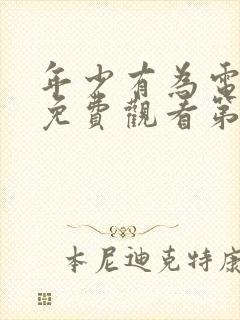 年少有為電
免費觀看第
本尼迪克特康